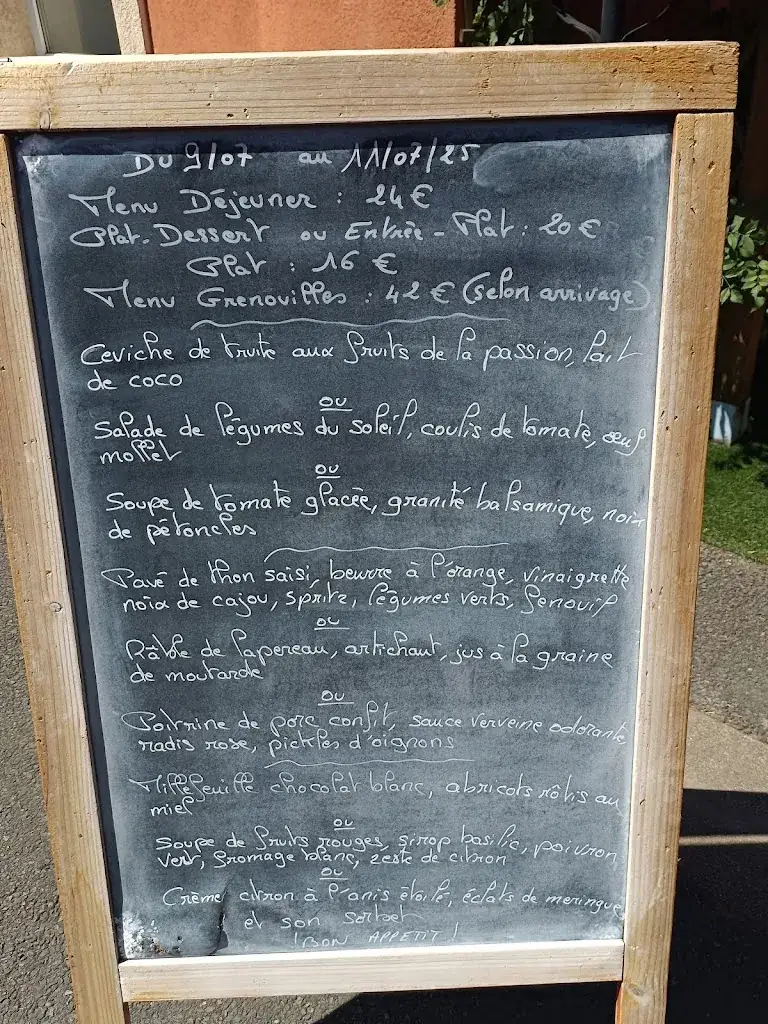 DU 9/07 au 11/07/25
Menu Déjeuner : 24 €
Plat-Dessert ou Entrée-Plat : 20 €
Plat : 16 €
Menu Grenouilles : 42 € (selon arrivage)
Ceviche de truite aux fruits de la passion, lait
de coco
OU
Salade de légumes du soleil, coulis de tomate, oeuf
mollet
OU
Soupe de tomate glacée, granité balsamique, noix
de pétoncles
Pavé de thon saisi, beurre à l'orange, vinaigrette
noix de cajou, spritz, légumes verts, fenouil
OU
Râble de lapereau, artichaut, jus à la graine
de moutarde
OU
Poitrine de porc confit, sauce verveine odorante,
radis rose, pickles d'oignons
Millefeuille chocolat blanc, abricots rôtis au
miel
OU
Soupe de fruits rouges, sirop basilic, poivron
vert, fromage blanc, zeste de citron
OU
Crème citron à l'anis étoilé, éclats de meringue
et son sorbet
! BON APPETIT !